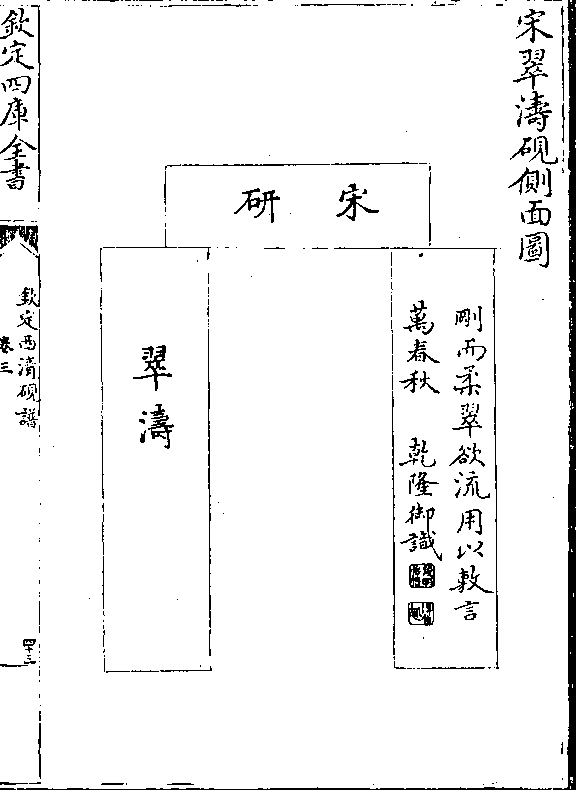 宋翠濤硯側面圖
宋研
剛而柔翠欲流用以敷言
萬春秋 乾隆御識
翠濤
欽定四庫全書
欽定西清硯譜
卷三
四十三